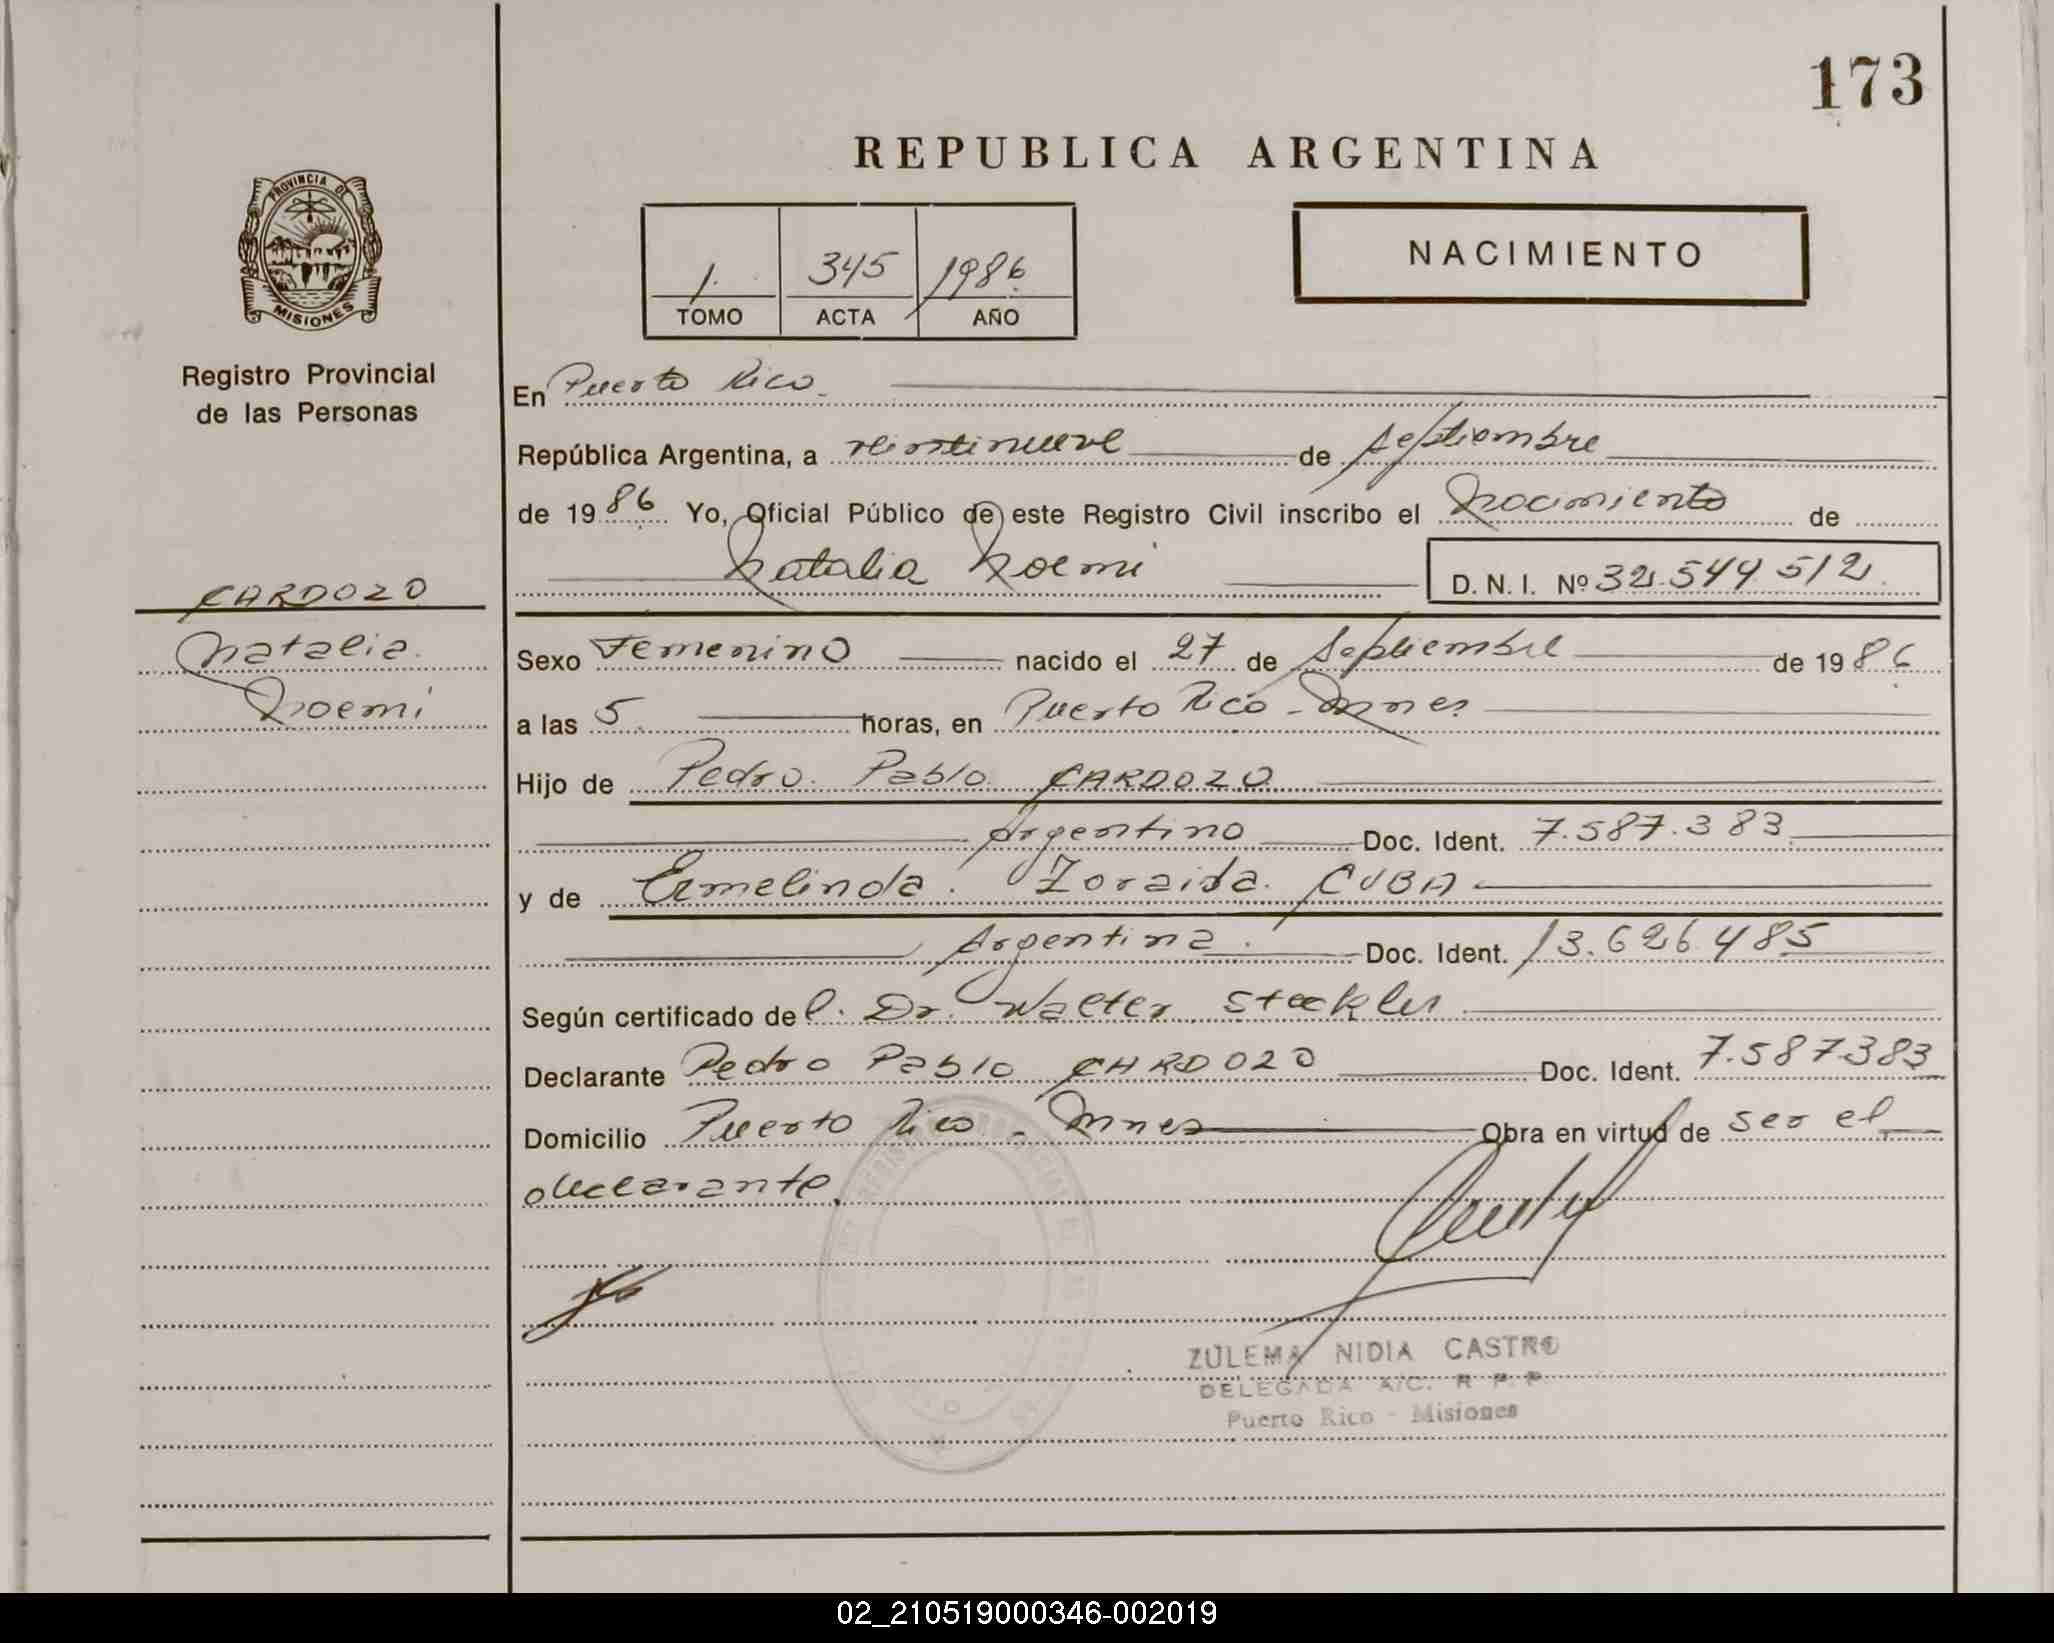 173
REPUBLICA ARGENTINA
PROVINCIA DE
MISIONES
Registro Provincial
de las Personas
1. 345 1986
TOMO ACTA AÑO
NACIMIENTO
En Puerto Rico
República Argentina, a veintinueve de septiembre
de 1986 Yo, Oficial Público de este Registro Civil inscribo el Nacimiento de
Natalia Noemi D. N. I. Nº 32.544.512
CARDOZO
Natalia
Noemi
Sexo Femenino nacido el 27 de Septiembre de 1986
a las 5 horas, en Puerto Rico - Mnes
Hijo de Pedro Pablo CARDOZO
Argentino Doc. Ident. 7.587.383
y de Ermelinda Zoraida CUBA
Argentina Doc. Ident. 13.626.485
Según certificado del Dr. Walter
Declarante Pedro Pablo CARDOZO Doc. Ident. 7.587.383
Domicilio Puerto Rico - Mnes Obra en virtud de ser el
declarante.
ZULEMA NIDIA CASTRO
DELEGADA A/C. R. P. P
Puerto Rico - Misiones
02_210519000346-002019